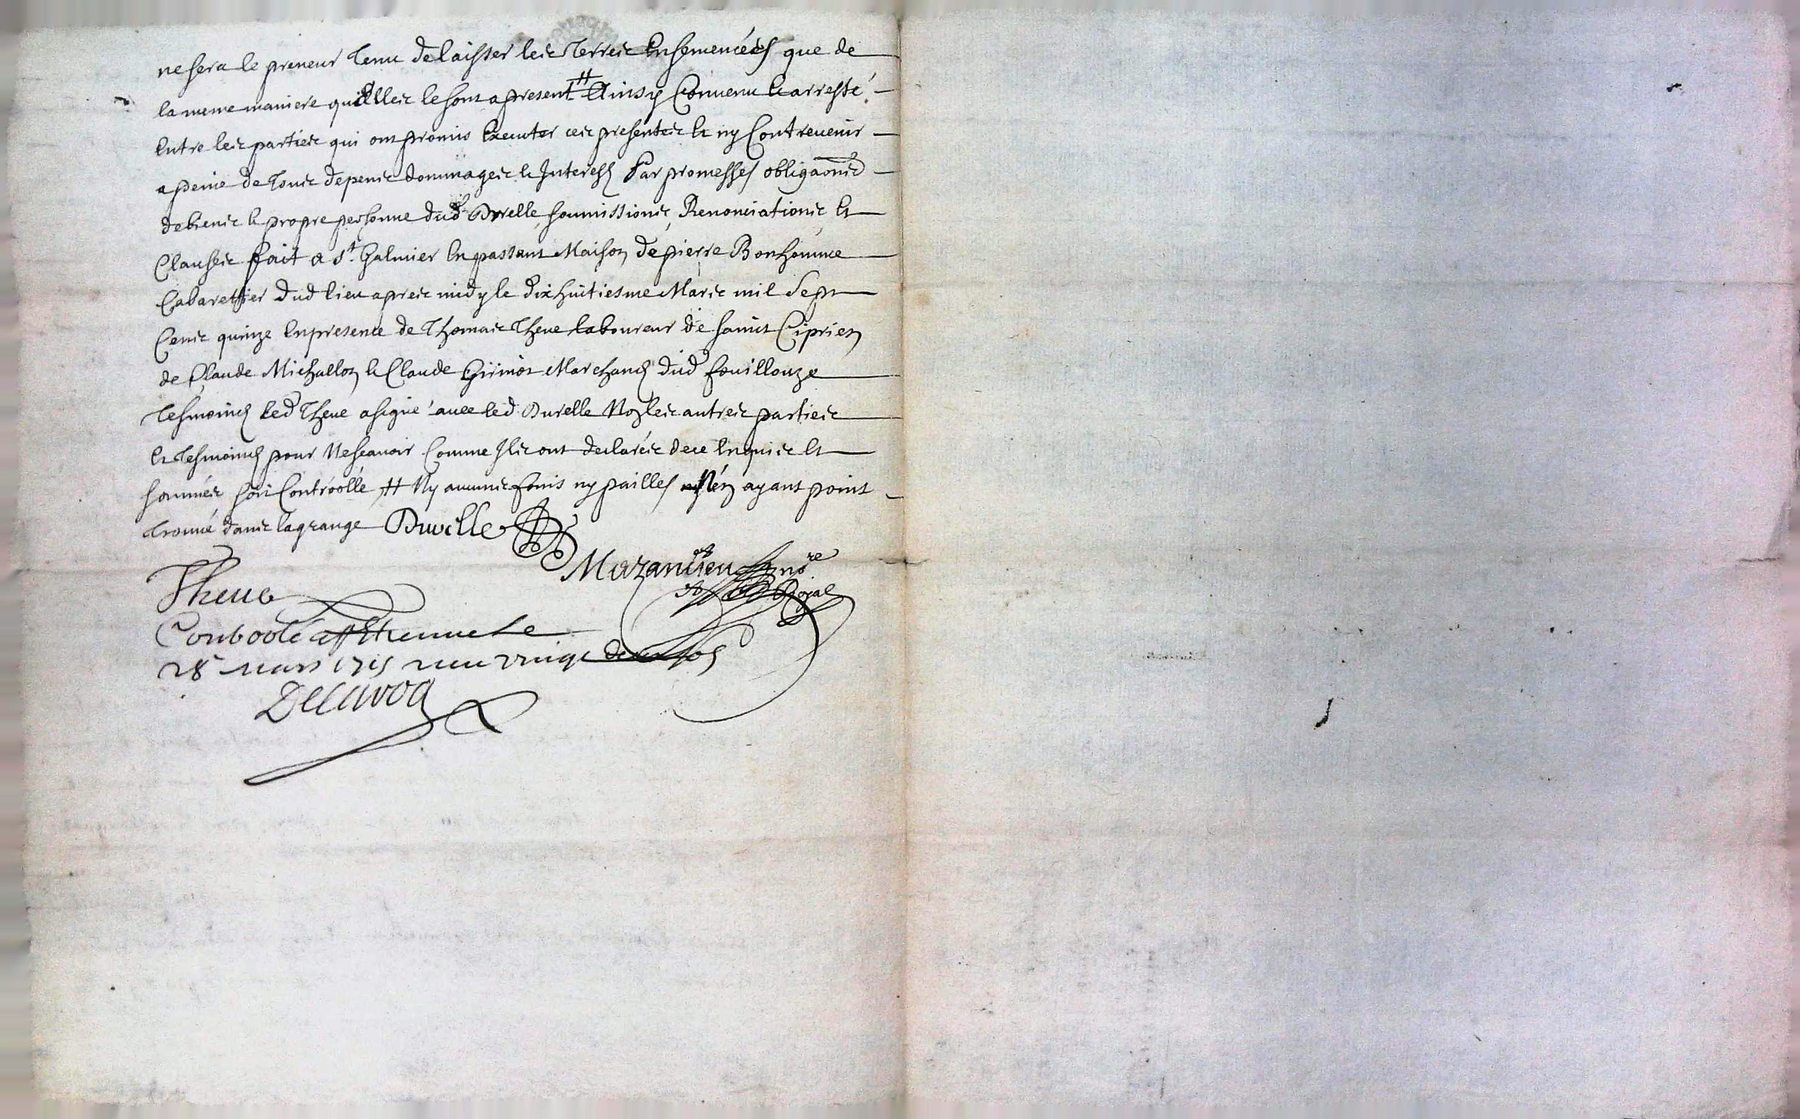 ne sera le preneur tenu de laisser les terres ensemencées que de
la meme maniere qu'elles le sont a present # Ainsy convenu et arresté
entre les parties qui ont promis executer ces presentes et ny contrevenir
a peine de tous depens dommages et interests par promesses obligaons
de biens et propre personne dud Duvelle soumissions Renonciations et
clauses fait a St Galmier en passant Maison de pierre Bonhomme
Cabarettier dud lieu apres midy le dix huitiesme Mars mil sept
cens quinze en presence de Thomas Theve laboureur de saint Ciprien
de Claude Michallon et Claude Marchand dud fouillouze
tesmoins led Theve a signé avec led Duvelle Non les autres parties
et tesmoins pour ne scavoir comme ils ont declarés de ce enquis et
sommés soit Controollé # Ny aucuns foins ny pailles n'en ayant point
trouvé dans la grange Duvelle
Mazandieu nore
Royal
Theve
Controolé a St Etienne Le
28e mars 1715 receu vingt deux sols